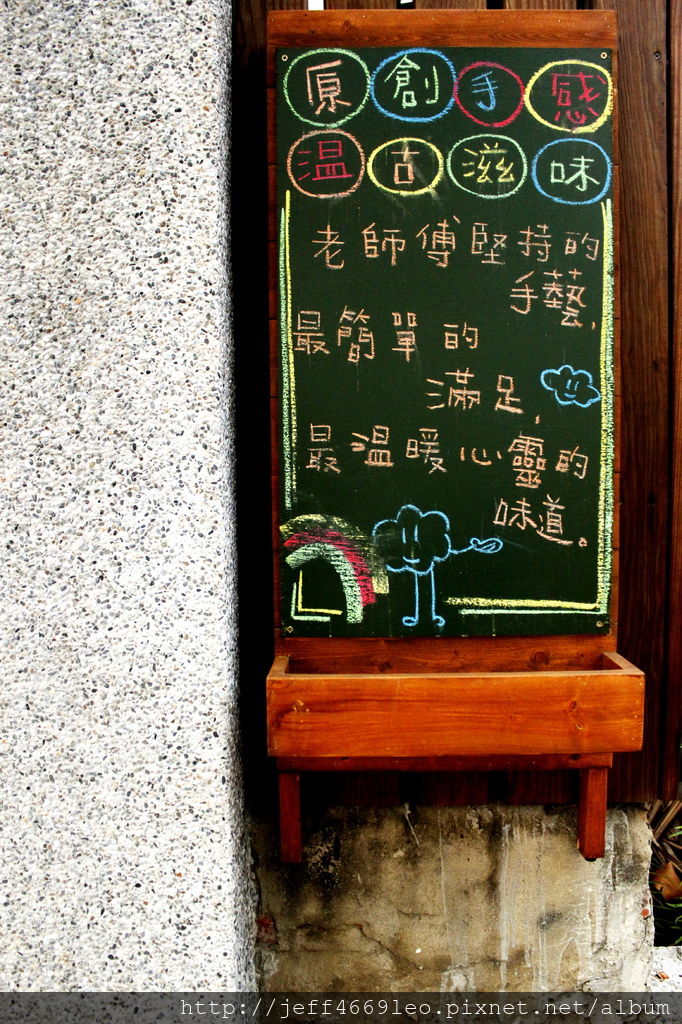 原創手感
温古滋味
老師傅堅持的
手藝,
最簡單的
滿足,
最温暖心靈的
味道。
http://jeff4669leo.pixnet.net/album